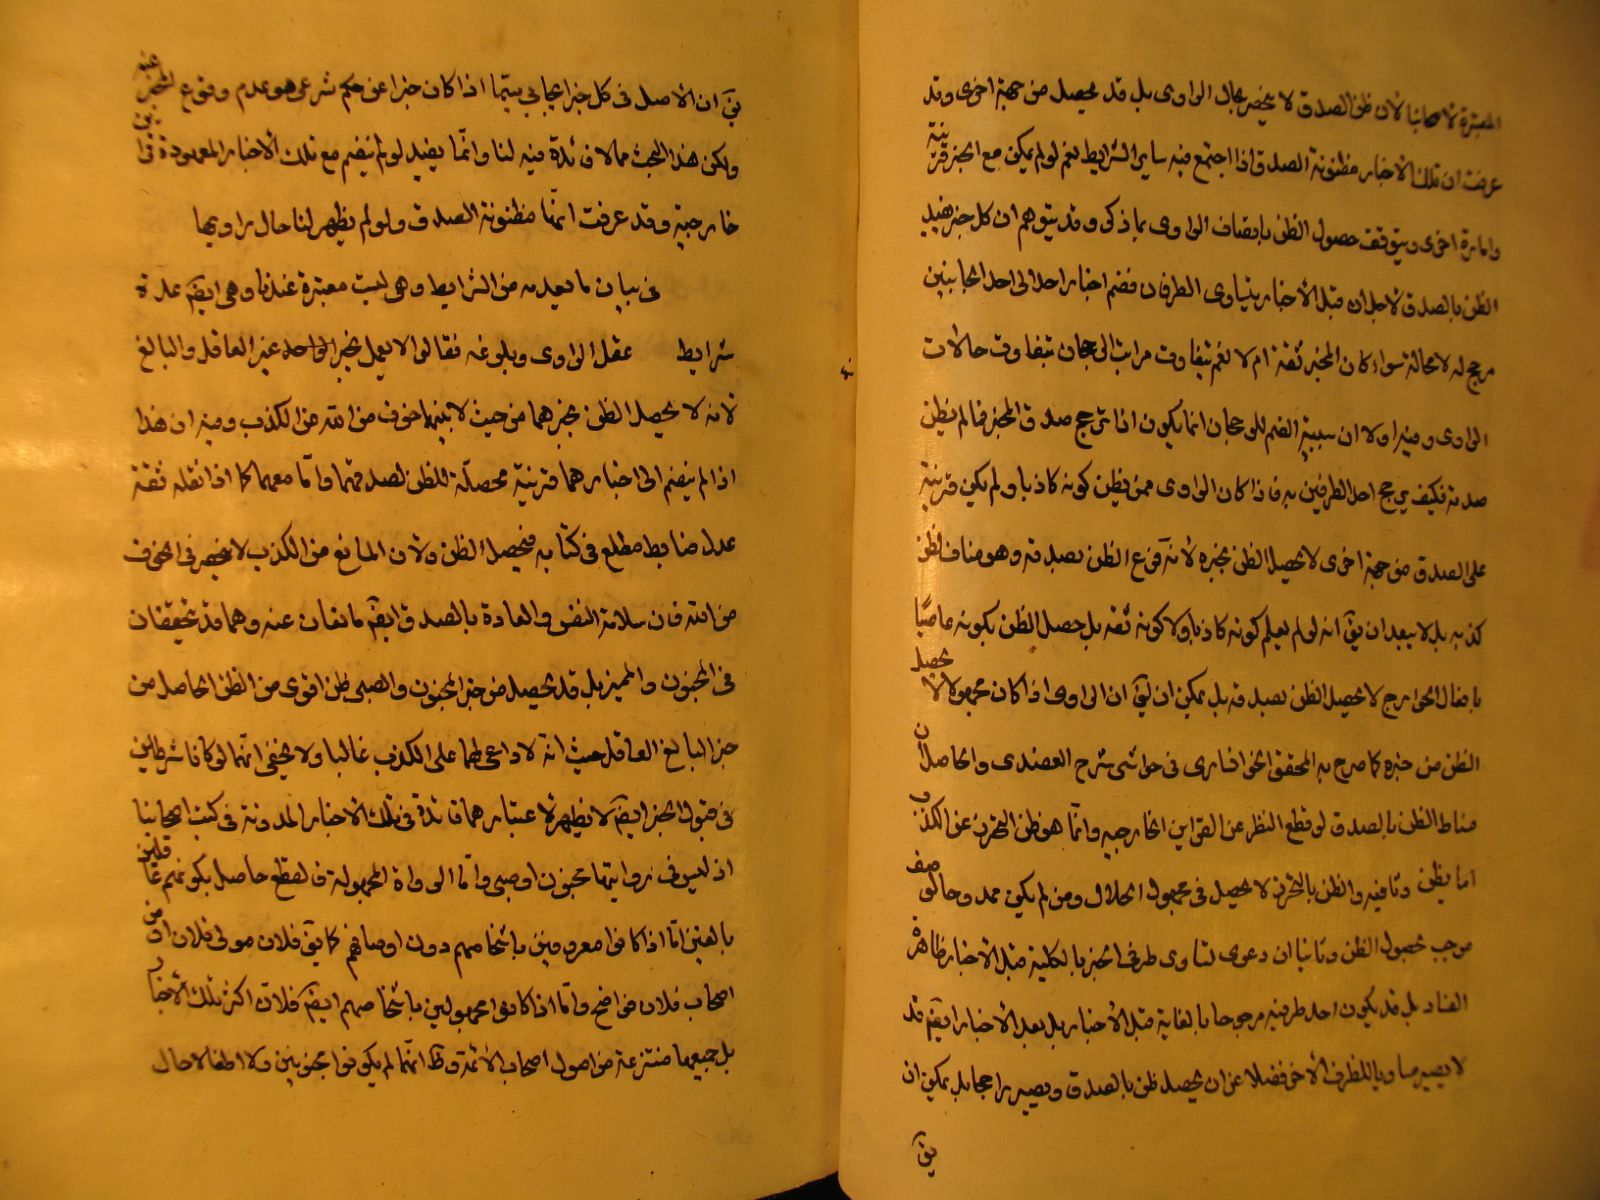 المعتبرة لاصحابنا لان ظن الصدق لا ينحصر بحال الراوى بل قد يحصل من جهة اخرى وقد
عرفت ان تلك الاخبار مظنونة الصدق اذا اجتمع فيه ساير الشرايط نعم لو لم يكن مع الخبر قرينة
وامارة اخرى يتوقف حصول الظن باتصاف الراوى بما ذكر وقد يتوهم ان كل خبر يفيد
الظن بالصدق لاجل ان قبل الاخبار يتساوى الطرفان فضم اخبار احد الى احد الجانبين
مرجح له لا محالة سواء كان المخبر ثقة ام لا نعم يتفاوت مراتب الرجحان بتفاوت حالات
الراوى وفيه اولا ان سببية الضم للرجحان انما يكون اذا ترجح صدق المخبر فما لم يظن
صدقه فكيف يرجح احد الطرفين به فاذا كان الراوى ممن يظن كونه كاذبا ولم يكن قرينة
على الصدق من جهة اخرى لا يحصل الظن بخبره لانه فرع الظن بصدقه وهو مناف لظن
كذبه بل لا يبعد ان يق انه لو لم يعلم كونه كاذبا ولا كونه ثقة بل حصل الظن بكونه عاصيًا
بافعال الجوارح لا يحصل الظن بصدقه بل يمكن ان يق ان الراوى اذا كان مجهولا لا يحصل
الظن من خبره كما صرح به المحقق الخوانسارى فى حواشى شرح العضدى والحاصل ان
مناط الظن بالصدق لو قطع النظر عن القراين الخارجيه وانما هو ظن التحرز عن الكذب
اما يظن وثاقته والظن بالتحرز لا يحصل فى مجهول الحال ومن لم يكن ممدوحا بوصف
موجب لحصول الظن وثانيا ان دعوى تساوى طرفى الخبر بالكلية قبل الاخبار ظاهرة
الفساد بل قد يكون احد طرفيه مرجوحا بالغاية قبل الاخبار بل بعد الاخبار ايضم قد
لا يصير مساويا للطرف الاخر فضلا عن ان يحصل ظن بالصدق ويصير راجحا بل يمكن ان
يق
يق ان الاصل فى كل خبر ايجابى سيما اذا كان خبرا عن حكم شرعى هو عدم وقوع المخبر عنه
ولكن هذا البحث مما لا فائدة فيه لنا وانما يفيد لو لم ينضم مع تلك الاخبار المعهودة قراين
خارجية وقد عرفت انها مظنونة الصدق ولو لم يظهر لنا حال راويها
فى بيان ما يعد من الشرايط وهى ليست معتبرة عندنا وهى ايضم عدة
شرايط عقل الراوى وبلوغه فقالوا لا يعمل بخبر الواحد غير العاقل والبالغ
لانه لا يحصل الظن بخبرهما من حيث لا بينهما خوف من الله عن الكذب وفيه ان هذا
اذا لم ينضم الى اخبارهما قرينة محصلة للظن لصدقهما واما معهما كما اذا نقله ثقة
عدل ضابط مطلع فى كتابه فيحصل الظن ولان المانع من الكذب لا ينحصر فى الخوف
من الله فان سلامة النفس والعادة بالصدق ايضم مانعان عنه وهما قد يتحققان
فى المجنون والمميز بل قد يحصل من خبر المجنون والصبى ظن اقوى من الظن الحاصل من
خبر البالغ العاقل حيث انه لا داعى لهما على الكذب غالبا ولا يخفى انهما لو كانا شرطين
فى قبول الخبر ايضم لا يظهر لاعتبارهما فائدة فى تلك الاخبار المدونة فى كتب اصحابنا
اذ ليس فى رواتها مجنون او صبى واما الرواة المجهولة فالقطع حاصل بكونهم عاقلين
بالغين اما اذا كانوا معروفين باشخاصهم دون اوصافهم كما يق فلان مولى فلان او من
اصحاب فلان فواضح واما اذا كانوا مجهولين باشخاصهم ايضم فلان اكثر تلك الاخبار
بل جميعها منتزعة من اصول اصحاب الائمة وظ انهم لم يكونوا مجنونين ولا اطفالا حال